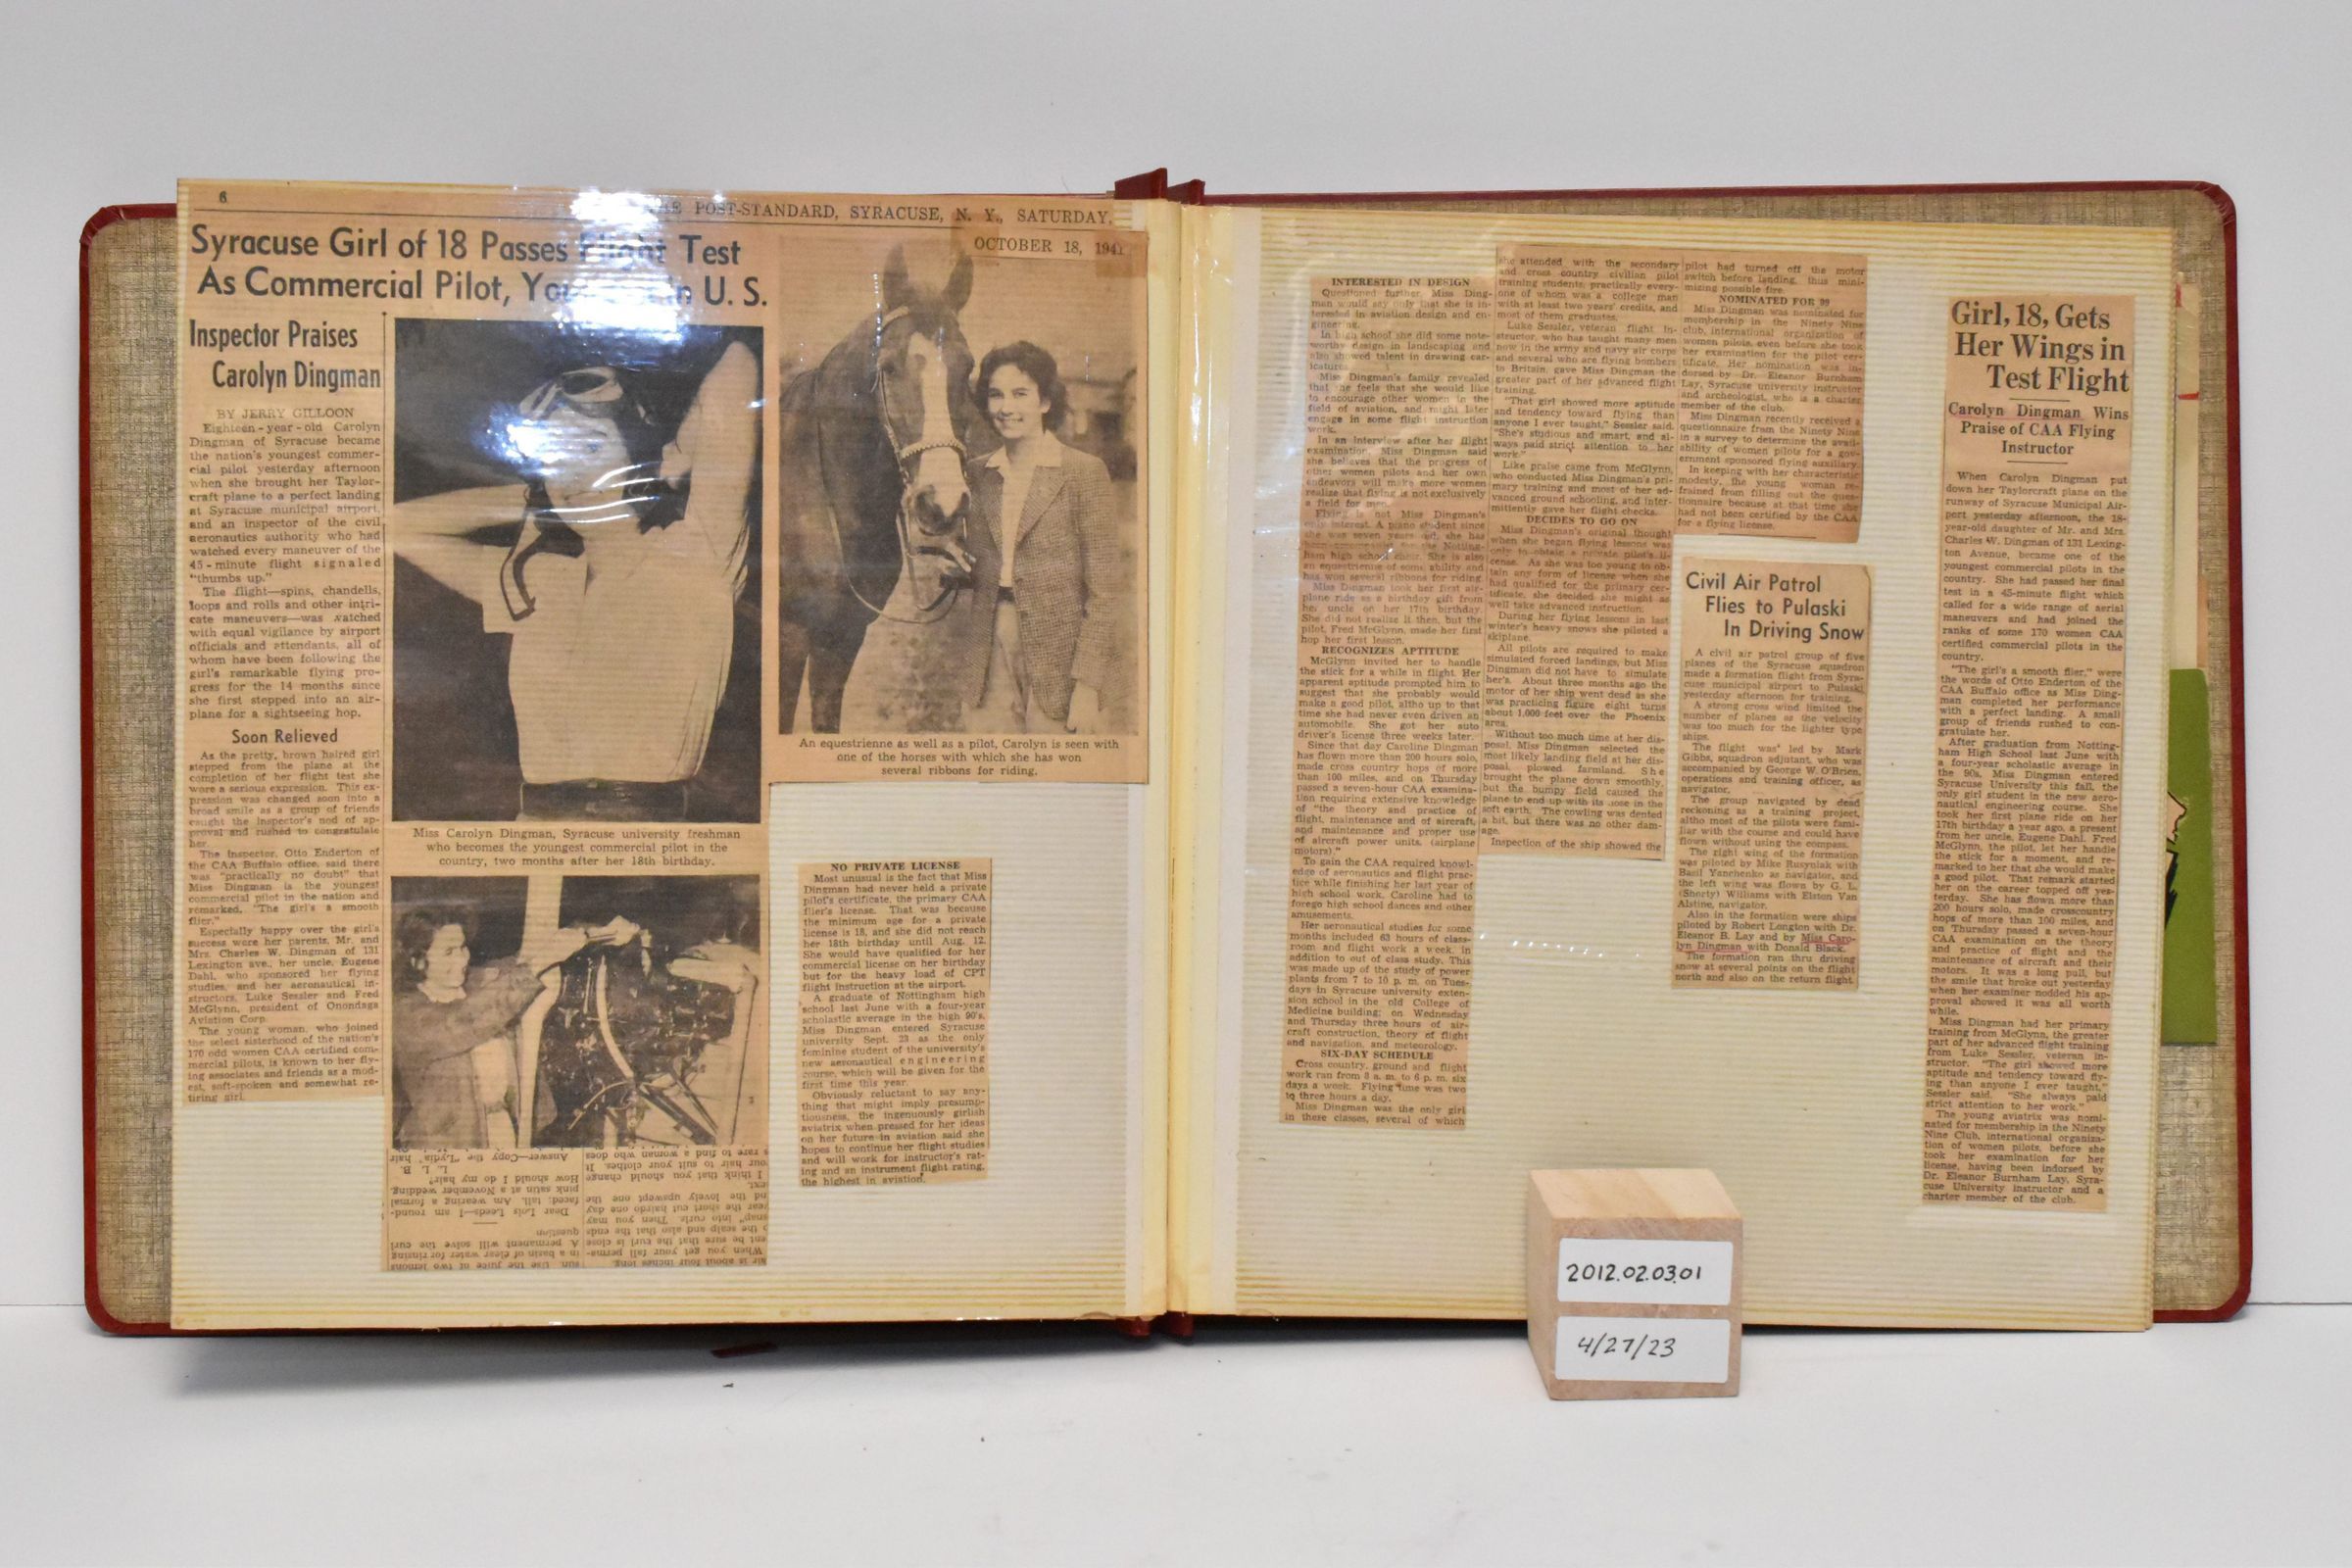 6
POST-STANDARD, SYRACUSE, N. Y., SATURDAY,
OCTOBER 18, 1941
Syracuse Girl of 18 Passes Flight Test
As Commercial Pilot, U. S.
Inspector Praises
Carolyn Dingman
BY JERRY GILLOON
Eighteen-year-old Carolyn
Dingman of Syracuse became
the nation's youngest commer-
cial pilot yesterday afternoon
when she brought her Taylor-
craft plane to a perfect landing
at Syracuse municipal airport,
and an inspector of the civil
aeronautics authority who had
watched every maneuver of the
45-minute flight signaled
"thumbs up."
The flight—spins, chandells,
loops and rolls and other intri-
cate maneuvers—was watched
with equal vigilance by airport
officials and attendants, all of
whom have been following the
girl's remarkable flying pro-
gress for the 14 months since
she first stepped into an air-
plane for a sightseeing hop.
Soon Relieved
As the pretty, brown haired girl
stepped from the plane at the
completion of her flight test she
wore a serious expression. This ex-
pression was changed soon into a
broad smile as a group of friends
caught the inspector's nod of ap-
proval and rushed to congratulate
her.
The inspector, Otto Enderton of
the CAA Buffalo office, said there
was "practically no doubt" that
Miss Dingman is the youngest
commercial pilot in the nation and
remarked, "The girl's a smooth
flier."
Especially happy over the girl's
success were her parents, Mr. and
Mrs. Charles W. Dingman of 131
Lexington ave., her uncle, Eugene
Dahl, who sponsored her flying
studies, and her aeronautical in-
structors, Luke Sessler and Fred
McGlynn, president of Onondaga
Aviation Corp.
The young woman, who joined
the select sisterhood of the nation's
170 odd women CAA certified com-
mercial pilots, is known to her fly-
ing associates and friends as a mod-
est, soft-spoken and somewhat re-
tiring girl.
Miss Carolyn Dingman, Syracuse university freshman
who becomes the youngest commercial pilot in the
country, two months after her 18th birthday.
An equestrienne as well as a pilot, Carolyn is seen with
one of the horses with which she has won
several ribbons for riding.
air is about four inches long.
When you get your fall perma-
ent be sure that the curl is close
o the scalp and also that the ends
snap" into curls. Then you may
ear the short cut hairdo one day
nd the lovely upswept one the
ext.
I think that you should change
our hair to suit your clothes. It
s rare to find a woman who does
sun. Use the juice of two lemons
in a basin of clear water for rinsing
A permanent will solve the curl
question
Dear Lois Leeds—I am round-
faced; tall. Am wearing a formal
pink satin at a November wedding.
How should I do my hair?
L. L. B.
Answer—Copy the "Lydia" hair
NO PRIVATE LICENSE
Most unusual is the fact that Miss
Dingman had never held a private
pilot's certificate, the primary CAA
flier's license. That was because
the minimum age for a private
license is 18, and she did not reach
her 18th birthday until Aug. 12.
She would have qualified for her
commercial license on her birthday
but for the heavy load of CPT
flight instruction at the airport.
A graduate of Nottingham high
school last June with a four-year
scholastic average in the high 90's,
Miss Dingman entered Syracuse
university Sept. 23 as the only
feminine student of the university's
new aeronautical engineering
course, which will be given for the
first time this year.
Obviously reluctant to say any-
thing that might imply presump-
tiousness, the ingenuously girlish
aviatrix when pressed for her ideas
on her future in aviation said she
hopes to continue her flight studies
and will work for instructor's rat-
ing and an instrument flight rating,
the highest in aviation.
INTERESTED IN DESIGN
Questioned further, Miss Ding-
man would say only that she is in-
terested in aviation design and en-
gineering.
In high school she did some note-
worthy design in landscaping and
also showed talent in drawing car-
icatures.
Miss Dingman's family revealed
that she feels that she would like
to encourage other women in the
field of aviation, and might later
engage in some flight instruction
work.
In an interview after her flight
examination, Miss Dingman said
she believes that the progress of
other women pilots and her own
endeavors will make more women
realize that flying is not exclusively
a field for men.
Flying is not Miss Dingman's
only interest. A piano student since
she was seven years old, she has
the Notting-
ham high school choir. She is also
an equestrienne of some ability and
has won several ribbons for riding.
Miss Dingman took her first air-
plane ride as a birthday gift from
her uncle on her 17th birthday.
She did not realize it then, but the
pilot, Fred McGlynn, made her first
hop her first lesson.
RECOGNIZES APTITUDE
McGlynn invited her to handle
the stick for a while in flight. Her
apparent aptitude prompted him to
suggest that she probably would
make a good pilot, altho up to that
time she had never even driven an
automobile. She got her auto
driver's license three weeks later.
Since that day Caroline Dingman
has flown more than 200 hours solo,
made cross country hops of more
than 100 miles, and on Thursday
passed a seven-hour CAA examina-
tion requiring extensive knowledge
of "the theory and practice of
flight, maintenance and of aircraft,
and maintenance and proper use
of aircraft power units, (airplane
motors)."
To gain the CAA required knowl-
edge of aeronautics and flight prac-
tice while finishing her last year of
high school work, Caroline had to
forego high school dances and other
amusements.
Her aeronautical studies for some
months included 63 hours of class-
room and flight work a week, in
addition to out of class study. This
was made up of the study of power
plants from 7 to 10 p. m. on Tues-
days in Syracuse university exten-
sion school in the old College of
Medicine building; on Wednesday
and Thursday three hours of air-
craft construction, theory of flight
and navigation, and meteorology.
SIX-DAY SCHEDULE
Cross country, ground and flight
work ran from 8 a. m. to 6 p. m. six
days a week. Flying time was two
to three hours a day.
Miss Dingman was the only girl
in these classes, several of which
she attended with the secondary
and cross country civilian pilot
training students, practically every-
one of whom was a college man
with at least two years' credits, and
most of them graduates.
Luke Sessler, veteran flight in-
structor, who has taught many men
now in the army and navy air corps
and several who are flying bombers
to Britain, gave Miss Dingman the
greater part of her advanced flight
training.
"That girl showed more aptitude
and tendency toward flying than
anyone I ever taught," Sessler said.
"She's studious and smart, and al-
ways paid strict attention to her
work."
Like praise came from McGlynn,
who conducted Miss Dingman's pri-
mary training and most of her ad-
vanced ground schooling, and inter-
mittently gave her flight checks.
DECIDES TO GO ON
Miss Dingman's original thought
when she began flying lessons was
only to obtain a private pilot's li-
cense. As she was too young to ob-
tain any form of license when she
had qualified for the primary cer-
tificate, she decided she might as
well take advanced instruction.
During her flying lessons in last
winter's heavy snows she piloted a
skiplane.
All pilots are required to make
simulated forced landings, but Miss
Dingman did not have to simulate
her's. About three months ago the
motor of her ship went dead as she
was practicing figure eight turns
about 1,000 feet over the Phoenix
area.
Without too much time at her dis-
posal, Miss Dingman selected the
most likely landing field at her dis-
posal, plowed farmland. She
brought the plane down smoothly,
but the bumpy field caused the
plane to end up with its nose in the
soft earth. The cowling was dented
a bit, but there was no other dam-
age.
Inspection of the ship showed the
pilot had turned off the motor
switch before landing, thus mini-
mizing possible fire.
NOMINATED FOR 99
Miss Dingman was nominated for
membership in the Ninety Nine
club, international organization of
women pilots, even before she took
her examination for the pilot cer-
tificate. Her nomination was in-
dorsed by Dr. Eleanor Burnham
Lay, Syracuse university instructor
and archeologist, who is a charter
member of the club.
Miss Dingman recently received a
questionnaire from the Ninety Nine
in a survey to determine the avail-
ability of women pilots for a gov-
ernment sponsored flying auxiliary.
In keeping with her characteristic
modesty, the young woman re-
frained from filling out the ques-
tionnaire because at that time she
had not been certified by the CAA
for a flying license.
Civil Air Patrol
Flies to Pulaski
In Driving Snow
A civil air patrol group of five
planes of the Syracuse squadron
made a formation flight from Syra-
cuse municipal airport to Pulaski
yesterday afternoon for training.
A strong cross wind limited the
number of planes as the velocity
was too much for the lighter type
ships.
The flight was led by Mark
Gibbs, squadron adjutant, who was
accompanied by George W. O'Brien,
operations and training officer, as
navigator.
The group navigated by dead
reckoning as a training project,
altho most of the pilots were fami-
liar with the course and could have
flown without using the compass.
The right wing of the formation
was piloted by Mike Rusyniak with
Basil Yanchenko as navigator, and
the left wing was flown by G. L.
(Shorty) Williams with Elston Van
Alstine, navigator.
Also in the formation were ships
piloted by Robert Longton with Dr.
Eleanor B. Lay and by Miss Caro-
lyn Dingman with Donald Black.
The formation ran thru driving
snow at several points on the flight
north and also on the return flight.
Girl, 18, Gets
Her Wings in
Test Flight
Carolyn Dingman Wins
Praise of CAA Flying
Instructor
When Carolyn Dingman put
down her Taylorcraft plane on the
runway of Syracuse Municipal Air-
port yesterday afternoon, the 18-
year-old daughter of Mr. and Mrs.
Charles W. Dingman of 131 Lexing-
ton Avenue, became one of the
youngest commercial pilots in the
country. She had passed her final
test in a 45-minute flight which
called for a wide range of aerial
maneuvers and had joined the
ranks of some 170 women CAA
certified commercial pilots in the
country.
"The girl's a smooth flier," were
the words of Otto Enderton of the
CAA Buffalo office as Miss Ding-
man completed her performance
with a perfect landing. A small
group of friends rushed to con-
gratulate her.
After graduation from Notting-
ham High School last June with
a four-year scholastic average in
the 90s, Miss Dingman entered
Syracuse University this fall, the
only girl student in the new aero-
nautical engineering course. She
took her first plane ride on her
17th birthday a year ago, a present
from her uncle, Eugene Dahl. Fred
McGlynn, the pilot, let her handle
the stick for a moment, and re-
marked to her that she would make
a good pilot. That remark started
her on the career topped off yes-
terday. She has flown more than
200 hours solo, made crosscountry
hops of more than 100 miles, and
on Thursday passed a seven-hour
CAA examination on the theory
and practice of flight and the
maintenance of aircraft and their
motors. It was a long pull, but
the smile that broke out yesterday
when her examiner nodded his ap-
proval showed it was all worth
while.
Miss Dingman had her primary
training from McGlynn, the greater
part of her advanced flight training
from Luke Sessler, veteran in-
structor. "The girl showed more
aptitude and tendency toward fly-
ing than anyone I ever taught,"
Sessler said. "She always paid
strict attention to her work."
The young aviatrix was nomi-
nated for membership in the Ninety
Nine Club, international organiza-
tion of women pilots, before she
took her examination for her
license, having been indorsed by
Dr. Eleanor Burnham Lay, Syra-
cuse University instructor and a
charter member of the club.
2012.02.03.01
4/27/23